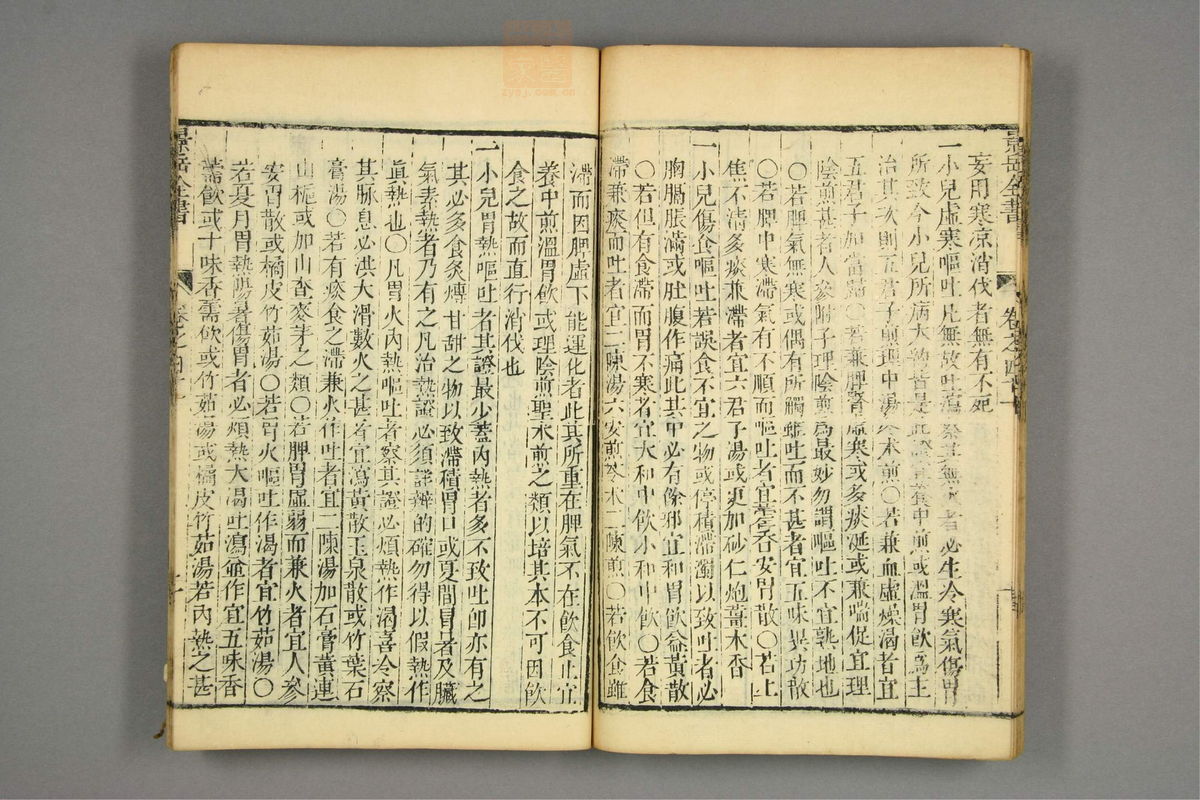 妄用寒凉消伐者無有不死
一小兒虛寒嘔吐凡無故吐瀉察其無火者必生冷寒氣傷胃
所致今小兒所病大約皆是此證宜養中煎或溫胃飲爲主
治其次則五君子煎理中湯冬朮煎〇若兼血虛燥渴者宜
五君子加當歸〇若兼脾腎虛寒或多痰涎或兼喘促宜理
陰煎甚者人參附子理陰煎爲最妙勿謂嘔吐不宜熟地也
〇若脾氣無寒或偶有所觸雖吐而不甚者宜五味異功散
〇若脾中寒滯氣有不順而嘔吐者宜藿香安胃散〇若上
焦不清多痰兼滯者宜六君子湯或更加砂仁炮薑木香
一小兒傷食嘔吐若誤食不宜之物或停積滯濁以致吐者必
胸膈脹滿或肚腹作痛此其中必有餘邪宜和胃飲益黃散
〇若但有食滯而胃不寒者宜大和中飲小和中飲〇若食
滯兼痰而吐者宜二陳湯六安煎苓朮二陳煎〇若飲食雖
滯而因脾虛下能運化者此其所重在脾氣不在飲食止宜
養中煎溫胃飲或理陰煎聖朮煎之類以培其本不可因飲
食之故而直行消伐也
一小兒胃熱嘔吐者其證最少蓋內熱者多不致吐卽亦有之
其必多食炙煿甘甜之物以致滯積胃口或夏間冒暑及臟
氣素熱者乃有之凡治熱證必須詳辨的確勿得以假熱作
眞熱也〇凡胃火內熱嘔吐者察其證必煩熱作渴喜冷察
其脉息必洪大滑數火之甚者宜瀉黃散玉泉散或竹葉石
膏湯〇若有痰食之滯兼火作吐者宜二陳湯加石膏黃連
山梔或加山查麥芽之類〇若脾胃虛弱而兼火者宜人參
安胃散或橘皮竹茹湯〇若胃火嘔吐作渴者宜竹茹湯〇
若夏月胃熱陽暑傷胃者必煩熱大渴吐瀉並作宜五味香
薷飲或十味香薷飲或竹茹湯或橘皮竹茹湯若內熱之甚
景岳全書
卷之四
景岳全書
卷之四十一
zyqj.com.cn